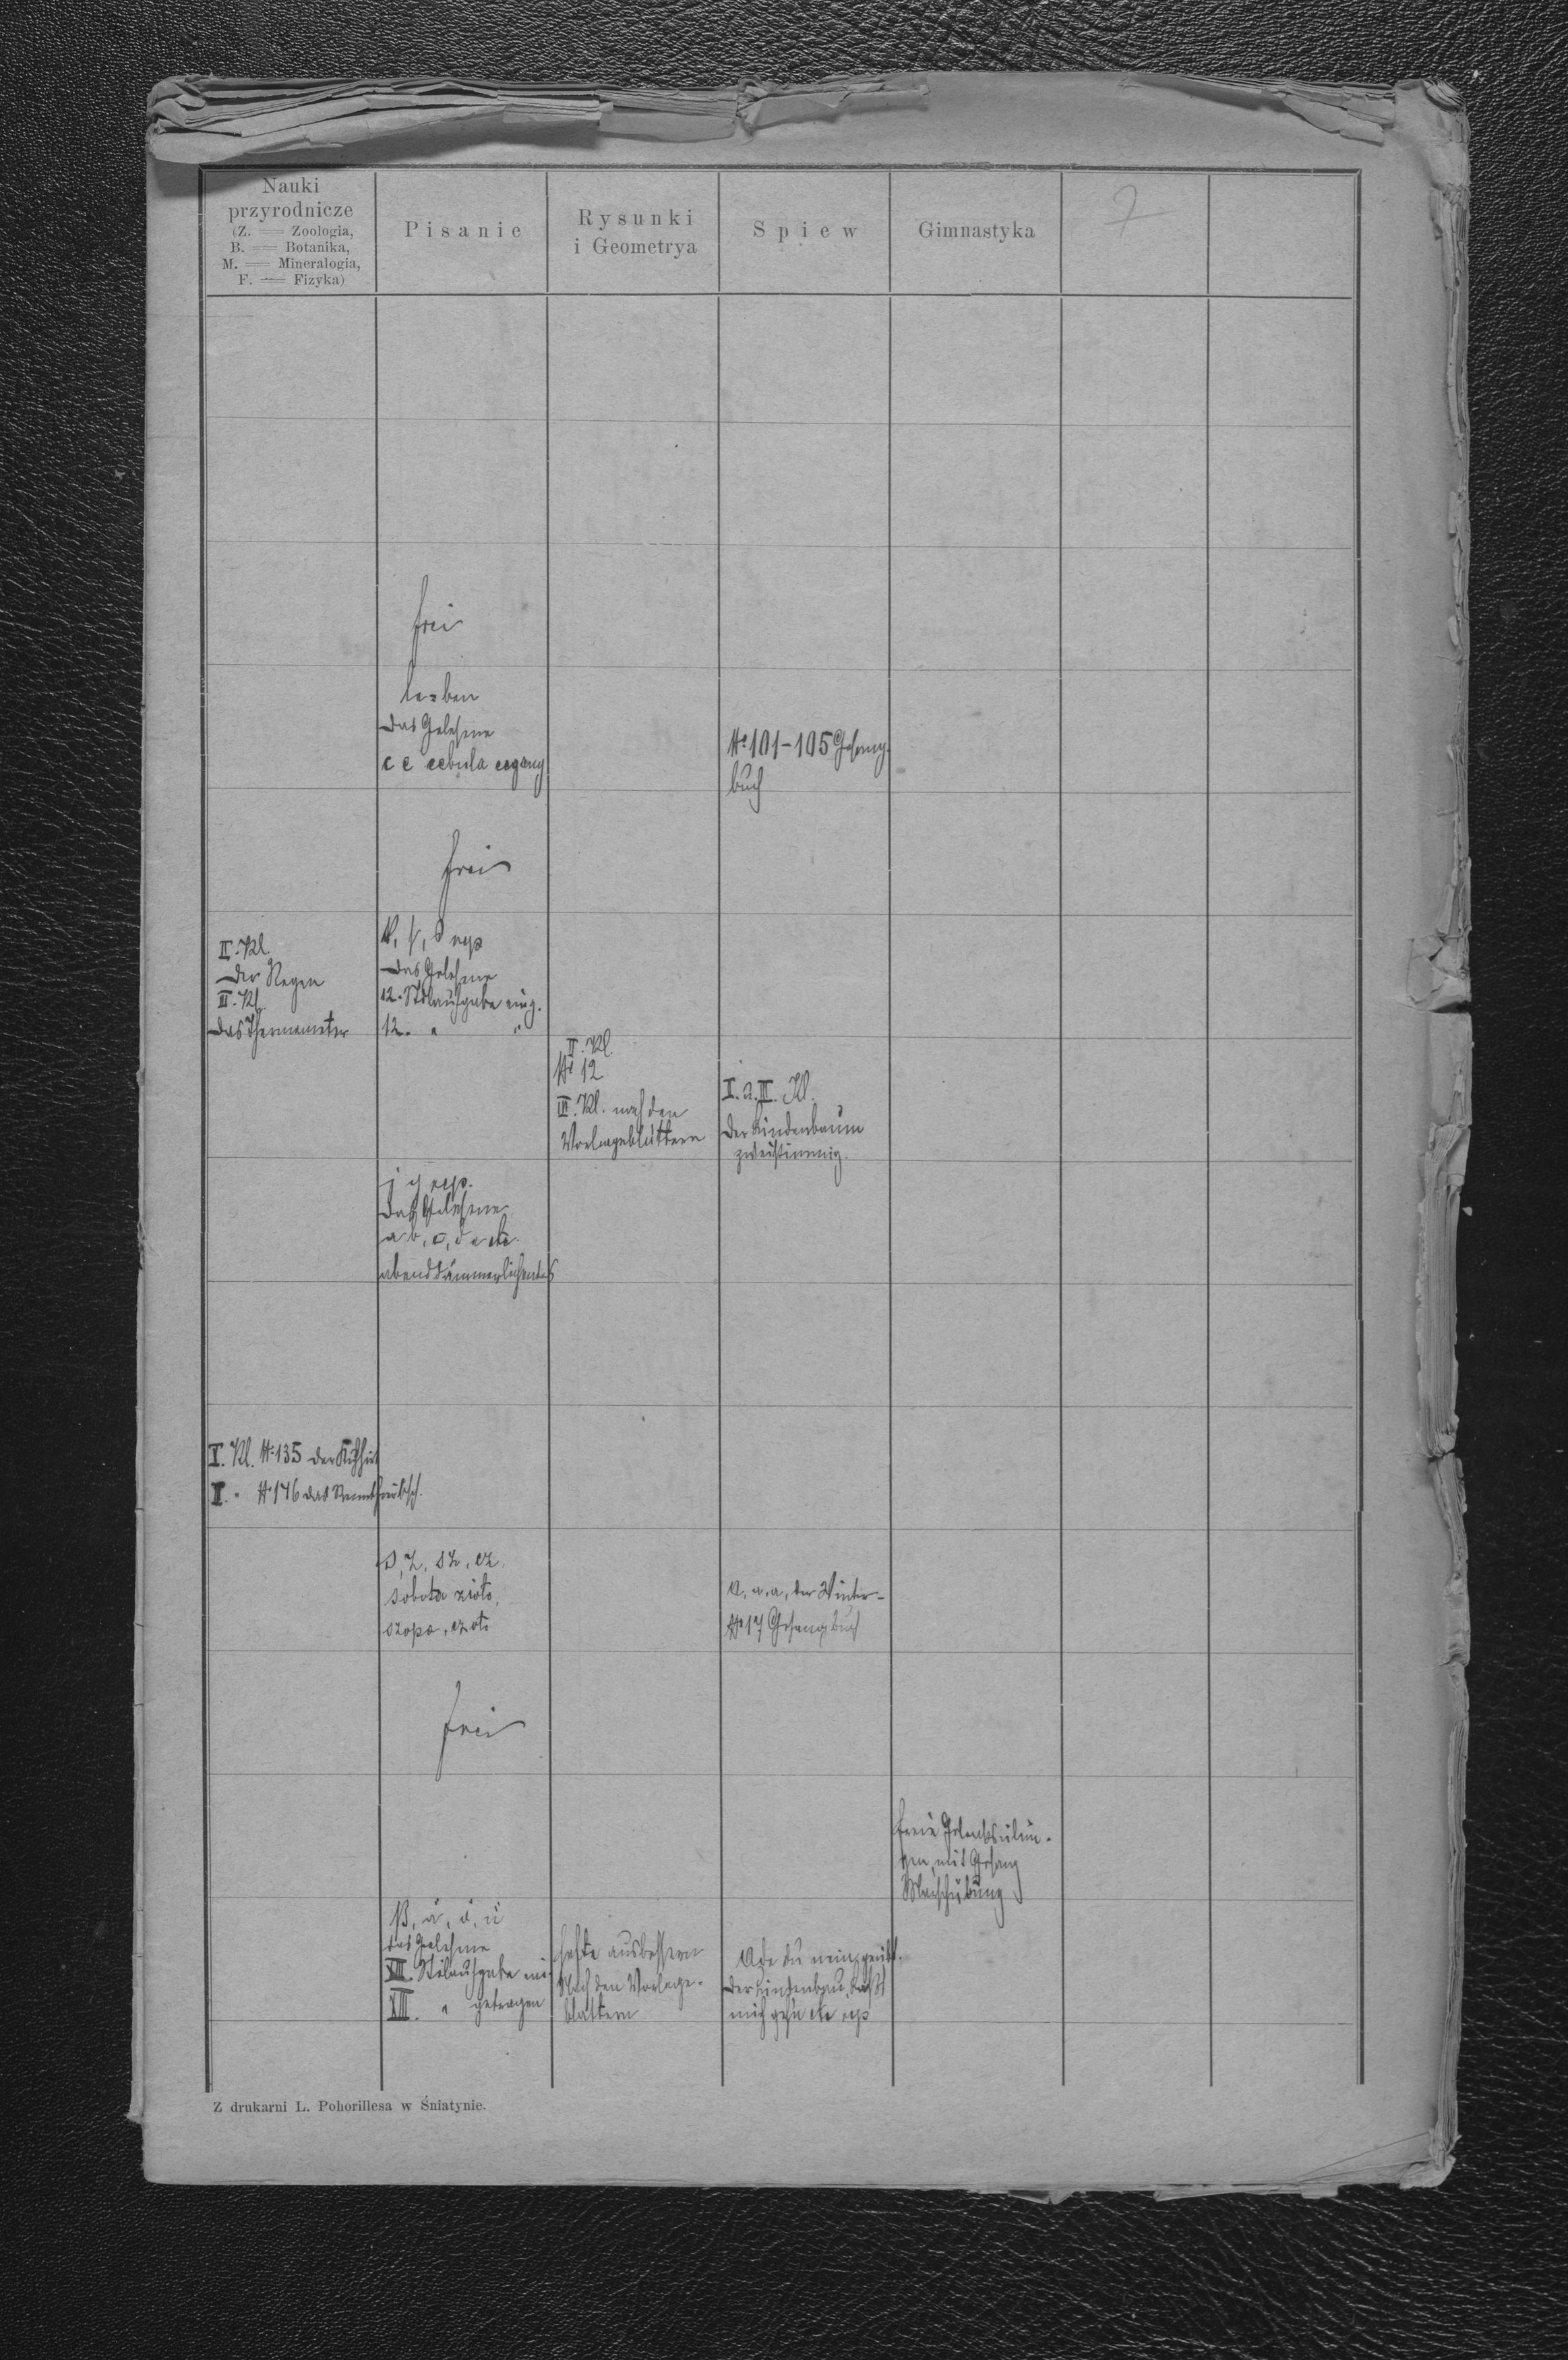 Nauki
przyrodnicze
(Z. = Zoologia,
B. = Botanika,
M. = Mineralogia,
F. = Fizyka)
Pisanie
Rysunki
i Geometrya
Spiew
Gimnastyka
7
frei
le=ben
Das Gelesene
c c cebula cegany
No 101-105 Gesang-
buch
frei
II. Kl.
Der Regen
III. Kl.
Das Thermometer
rep
Das Gelesene
12. Stilaufgabe eing.
12. " "
II. Kl.
No 12
III. Kl. nach den
Vorlageblättern
II. u. III. Kl.
Der Lindenbaum
zweistimmig.
j y rep.
Das Gelesene
a b, c, d e etc
I. Kl. No 135 der
II. " No 176 das
s, z, sz, cz
sobota
szopa,
der Winter-
No 17 Gesangbuch
frei
freie Gelenksübun-
gen, mit Gesang
ß, ä, ö, ü
das Gelesene
XIII. Stilaufgabe ein
XIII. " getragen
Hefte ausbessern
Nach den Vorlage-
blättern
Ade du mein
mich gehn etc rep
Z drukarni L. Pohorillesa w Śniatynie.